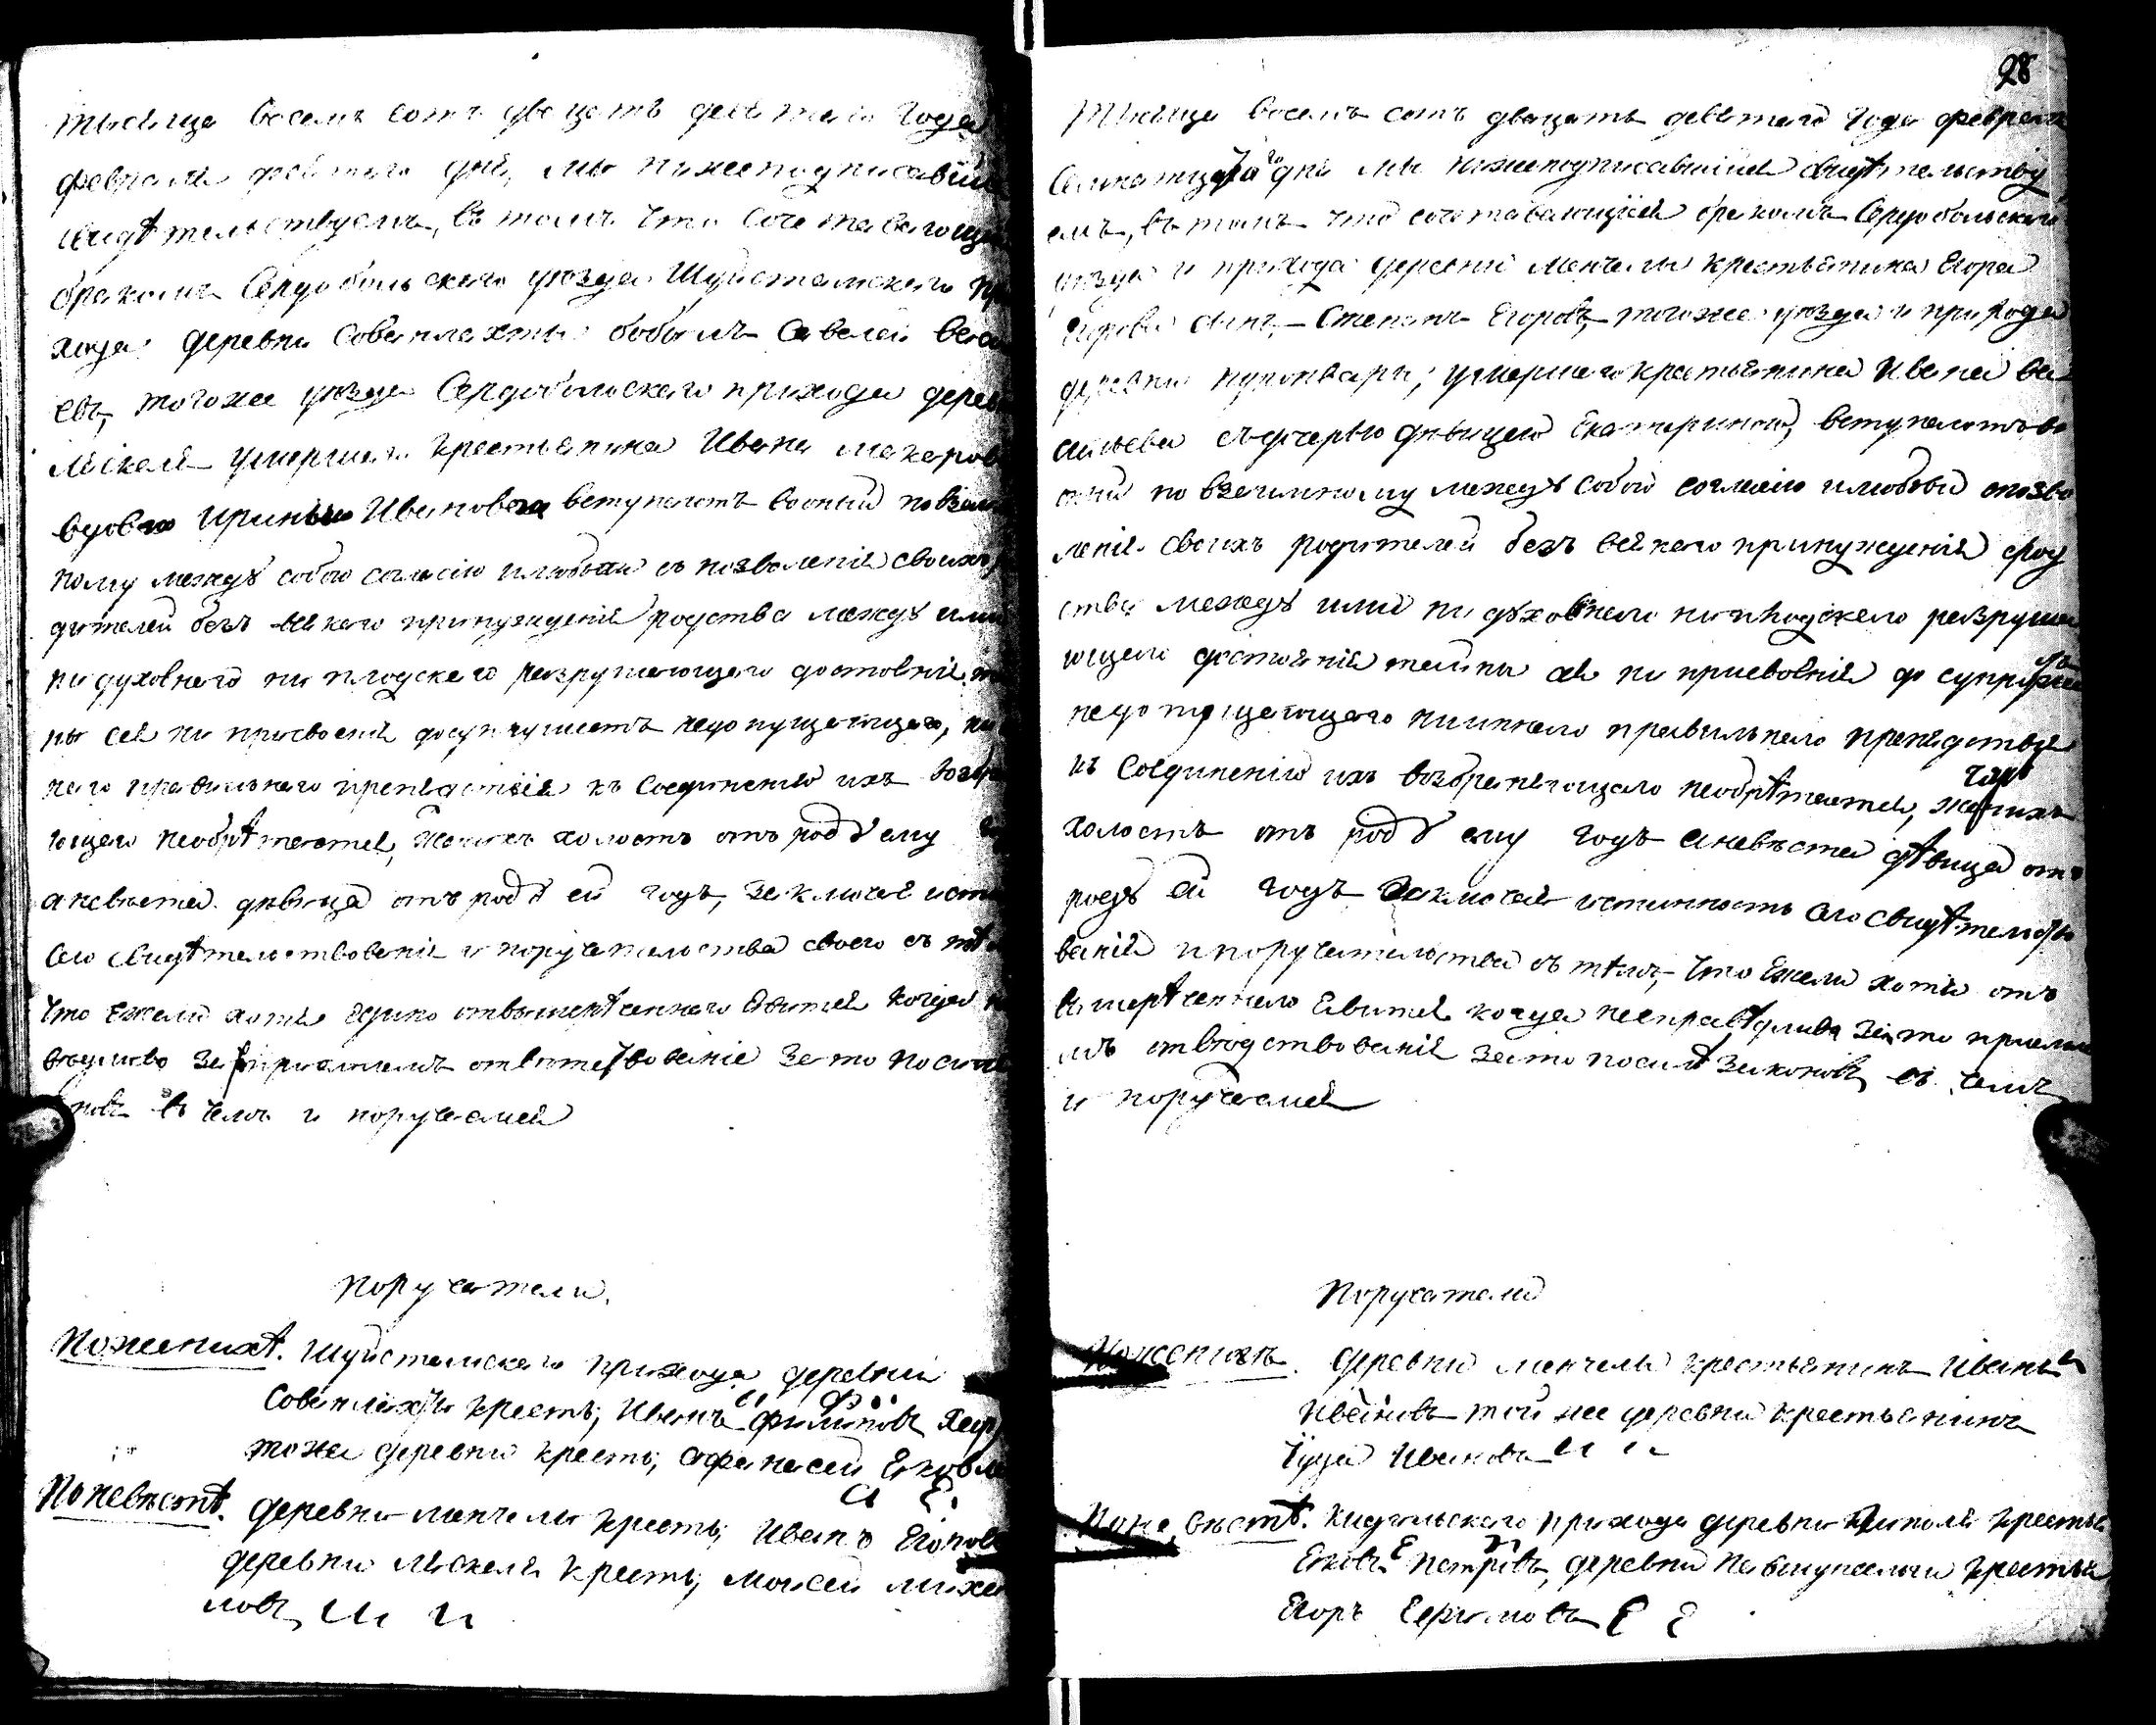 тысяща восемъ сотъ двацать девятаго года
февраля девятаго дня, мы нижеподписавшіи
свидѣтельствуемъ, въ томъ что сочетавающі
бракомъ Сердобольскаго уезда Шуйстамскаго пр
хода деревни Соваплахты бобыль Савелей Васи
евъ, тогоже уезда Сердобольскаго прихода дерев
Ляскеля умершаго крестьянина Ивана Макаров
вдовою Ириною Ивановою вступаютъ вооный повзаи
ному между собою согласію илюбови съ позволенія своихъ
дителей безъ всякаго принужденія родства между ими
ни духовнаго ни плодскаго разрушающаго достовнія та
ны сея ни присвоенія досупружествъ недопущающаго, ни
наго правильнаго препятствія къ соединенію ихъ возбр
ющаго необрѣтается, женихъ холостъ отъ роду ему
аневѣста девица отъ роду ей годъ, заключая исти
сего свидѣтельствованія и поручательства своего съ тѣ
что ежели хотя едино отвышерѣченнаго явится когда н
ведливо за то приемлемъ ответствованіе зато посил
новъ въ чемъ и поручаемся
Поручатели.
Поженихѣ. Шуйстамскаго прихода деревни
Соваплахты крестъ; Иванъ Филиповъ
И Ф
тожа деревни крестъ; Афанасей Яковле
А Е.
Поневѣстѣ. деревни Ланчели крестъ; Иванъ Егоров
деревни Ляскеля крестъ; Моисей Михаи
ловъ, М М
28
Тысяща восемъ сотъ двацать девятаго года февраля
дня мы нижеподписавшіися свидѣтельству
емъ, въ томъ что сочетавающіися бракомъ Сердобольскаго
уезда и прихода деревни Манчели крестьянина Егора
сынъ, Степанъ Егоровъ, тогоже уезда и прихода
деревни умершаго крестьянина Ивана Ва
сильева съдочерью девицею Екатериною, вступаютъ во
оный по взаимному между собою согласію илюбови спозво
ленія своихъ родителей безъ всякаго принужденія срод
ства между ими ни духовнаго ниплодскаго разруша
ющаго достоянія тайны сея ни присвовнія до супруже
недопущающаго нииннаго правильнаго препядствія
къ соединенію ихъ возбраняющаго необрѣтается, женихъ
холостъ отъ роду ему годъ аневѣста дѣвица отъ
роду ей годъ заключая истинность сего свидѣтельство
ванія ипоручительства съ тѣмъ, что ежели хотя отъ
вышерѣченнаго явится когда несправѣдливо зато приемле
мъ отвѣдствованія зато посилѣ законовъ въ чемъ
и поручаемся
Поручатели
Поженихѣ. деревни Манчели крестьянинъ Иванъ
Ивановъ той же деревни крестьянинъ
Иванова И И
Поневѣстѣ. Кидельскаго прихода деревни крестья
Яковъ Петровъ, деревни крестья
Егоръ Ефимовъ Е Е